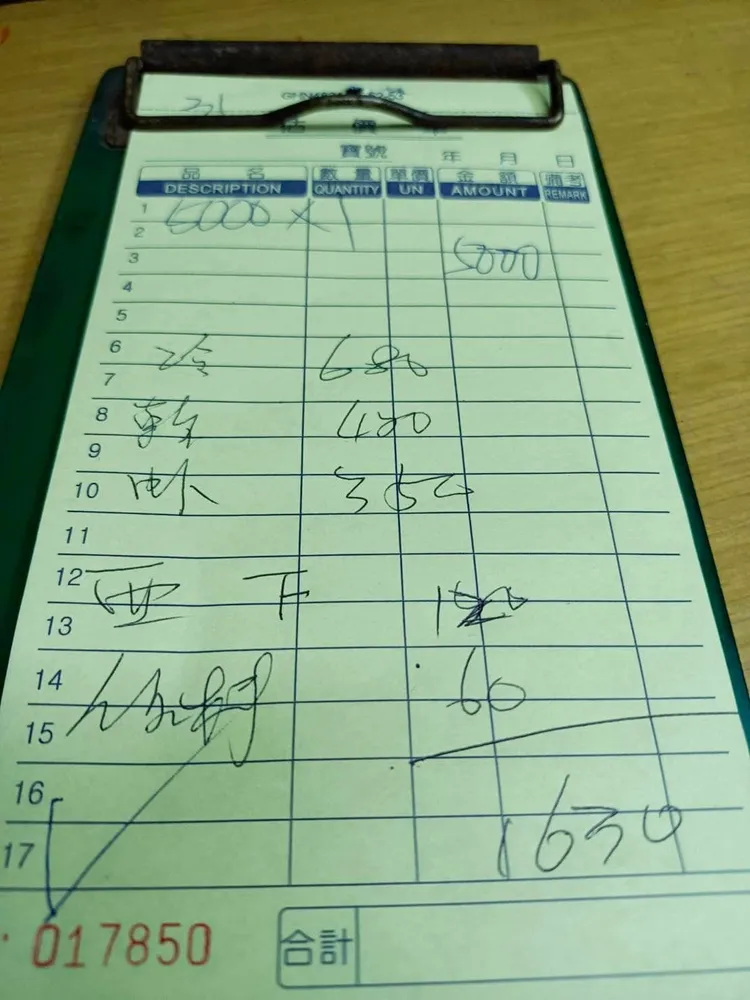 估價單
寶號 年 月 日
品名 數量 單價 金額 備考
DESCRIPTION QUANTITY UN AMOUNT REMARK
1 5000 × 1
2
3 5000
4
5
6 冷 680
7
8 420
9
10 350
11
12 西 下
13
14 60
15
16 1630
17
017850 合計